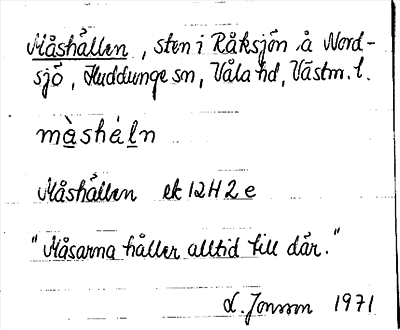 Måshållen, sten i Råksjön å Nord-
sjö, Huddunge sn, Våla hd, Västm. l.
mа̀sháln
Måshållen ek 12H2e
"Måsarna håller alltid till där."
L. Jonsson 1971